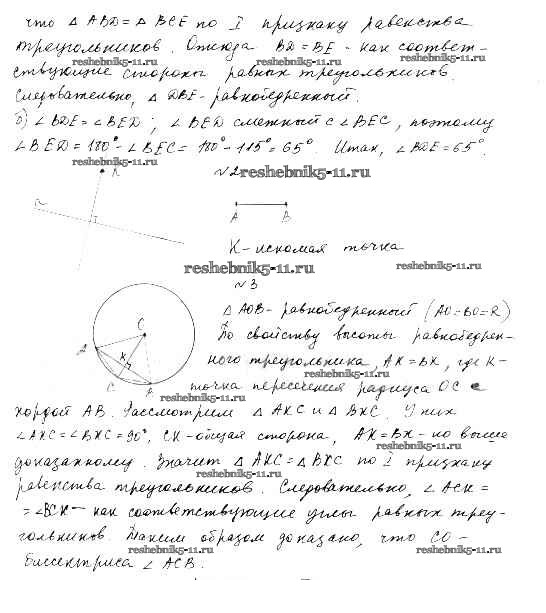 что △ ABD = △ BCE по I признаку равенства
треугольников. Отсюда BD = BE - как соответ-
ствующие стороны равных треугольников.
reshebnik5-11.ru
Следовательно, △ DBE - равнобедренный.
reshebnik5-11.ru
б) ∠BDE = ∠BED; ∠BED смежный с ∠BEC, поэтому
∠BED = 180° - ∠BEC = 180° - 115° = 65°. Итак, ∠BDE = 65°.
reshebnik5-11.ru
№2
reshebnik5-11.ru
K
a
A B
K - искомая точка
reshebnik5-11.ru
reshebnik5-11.ru
№3
△ AOB - равнобедренный (AO = BO = R)
reshebnik5-11.ru
По свойству высоты равнобедрен-
ного треугольника, AK = BK, где K -
reshebnik5-11.ru
точка пересечения радиуса OC с
O
A
K
C
хордой AB. Рассмотрим △ AKC и △ BKC. У них
reshebnik5-11.ru
∠AKC = ∠BKC = 90°, CK - общая сторона, AK = BK - по выше
reshebnik5-11.ru
доказанному. Значит △ AKC = △ BKC по I признаку
reshebnik5-11.ru
равенства треугольников. Следовательно, ∠ACK =
= ∠BCK - как соответствующие углы равных треу-
reshebnik5-11.ru
гольников. Таким образом доказано, что CO -
reshebnik5-11.ru
reshebnik5-11.ru
биссектриса ∠ ACB.